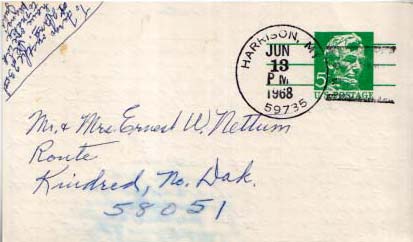 HARRISON, MT
JUN
13
P M
1968
59735
5¢
U.S. POSTAGE
Mr. & Mrs. Ernest W. Nettum
Route
Kindred, No. Dak.
58051